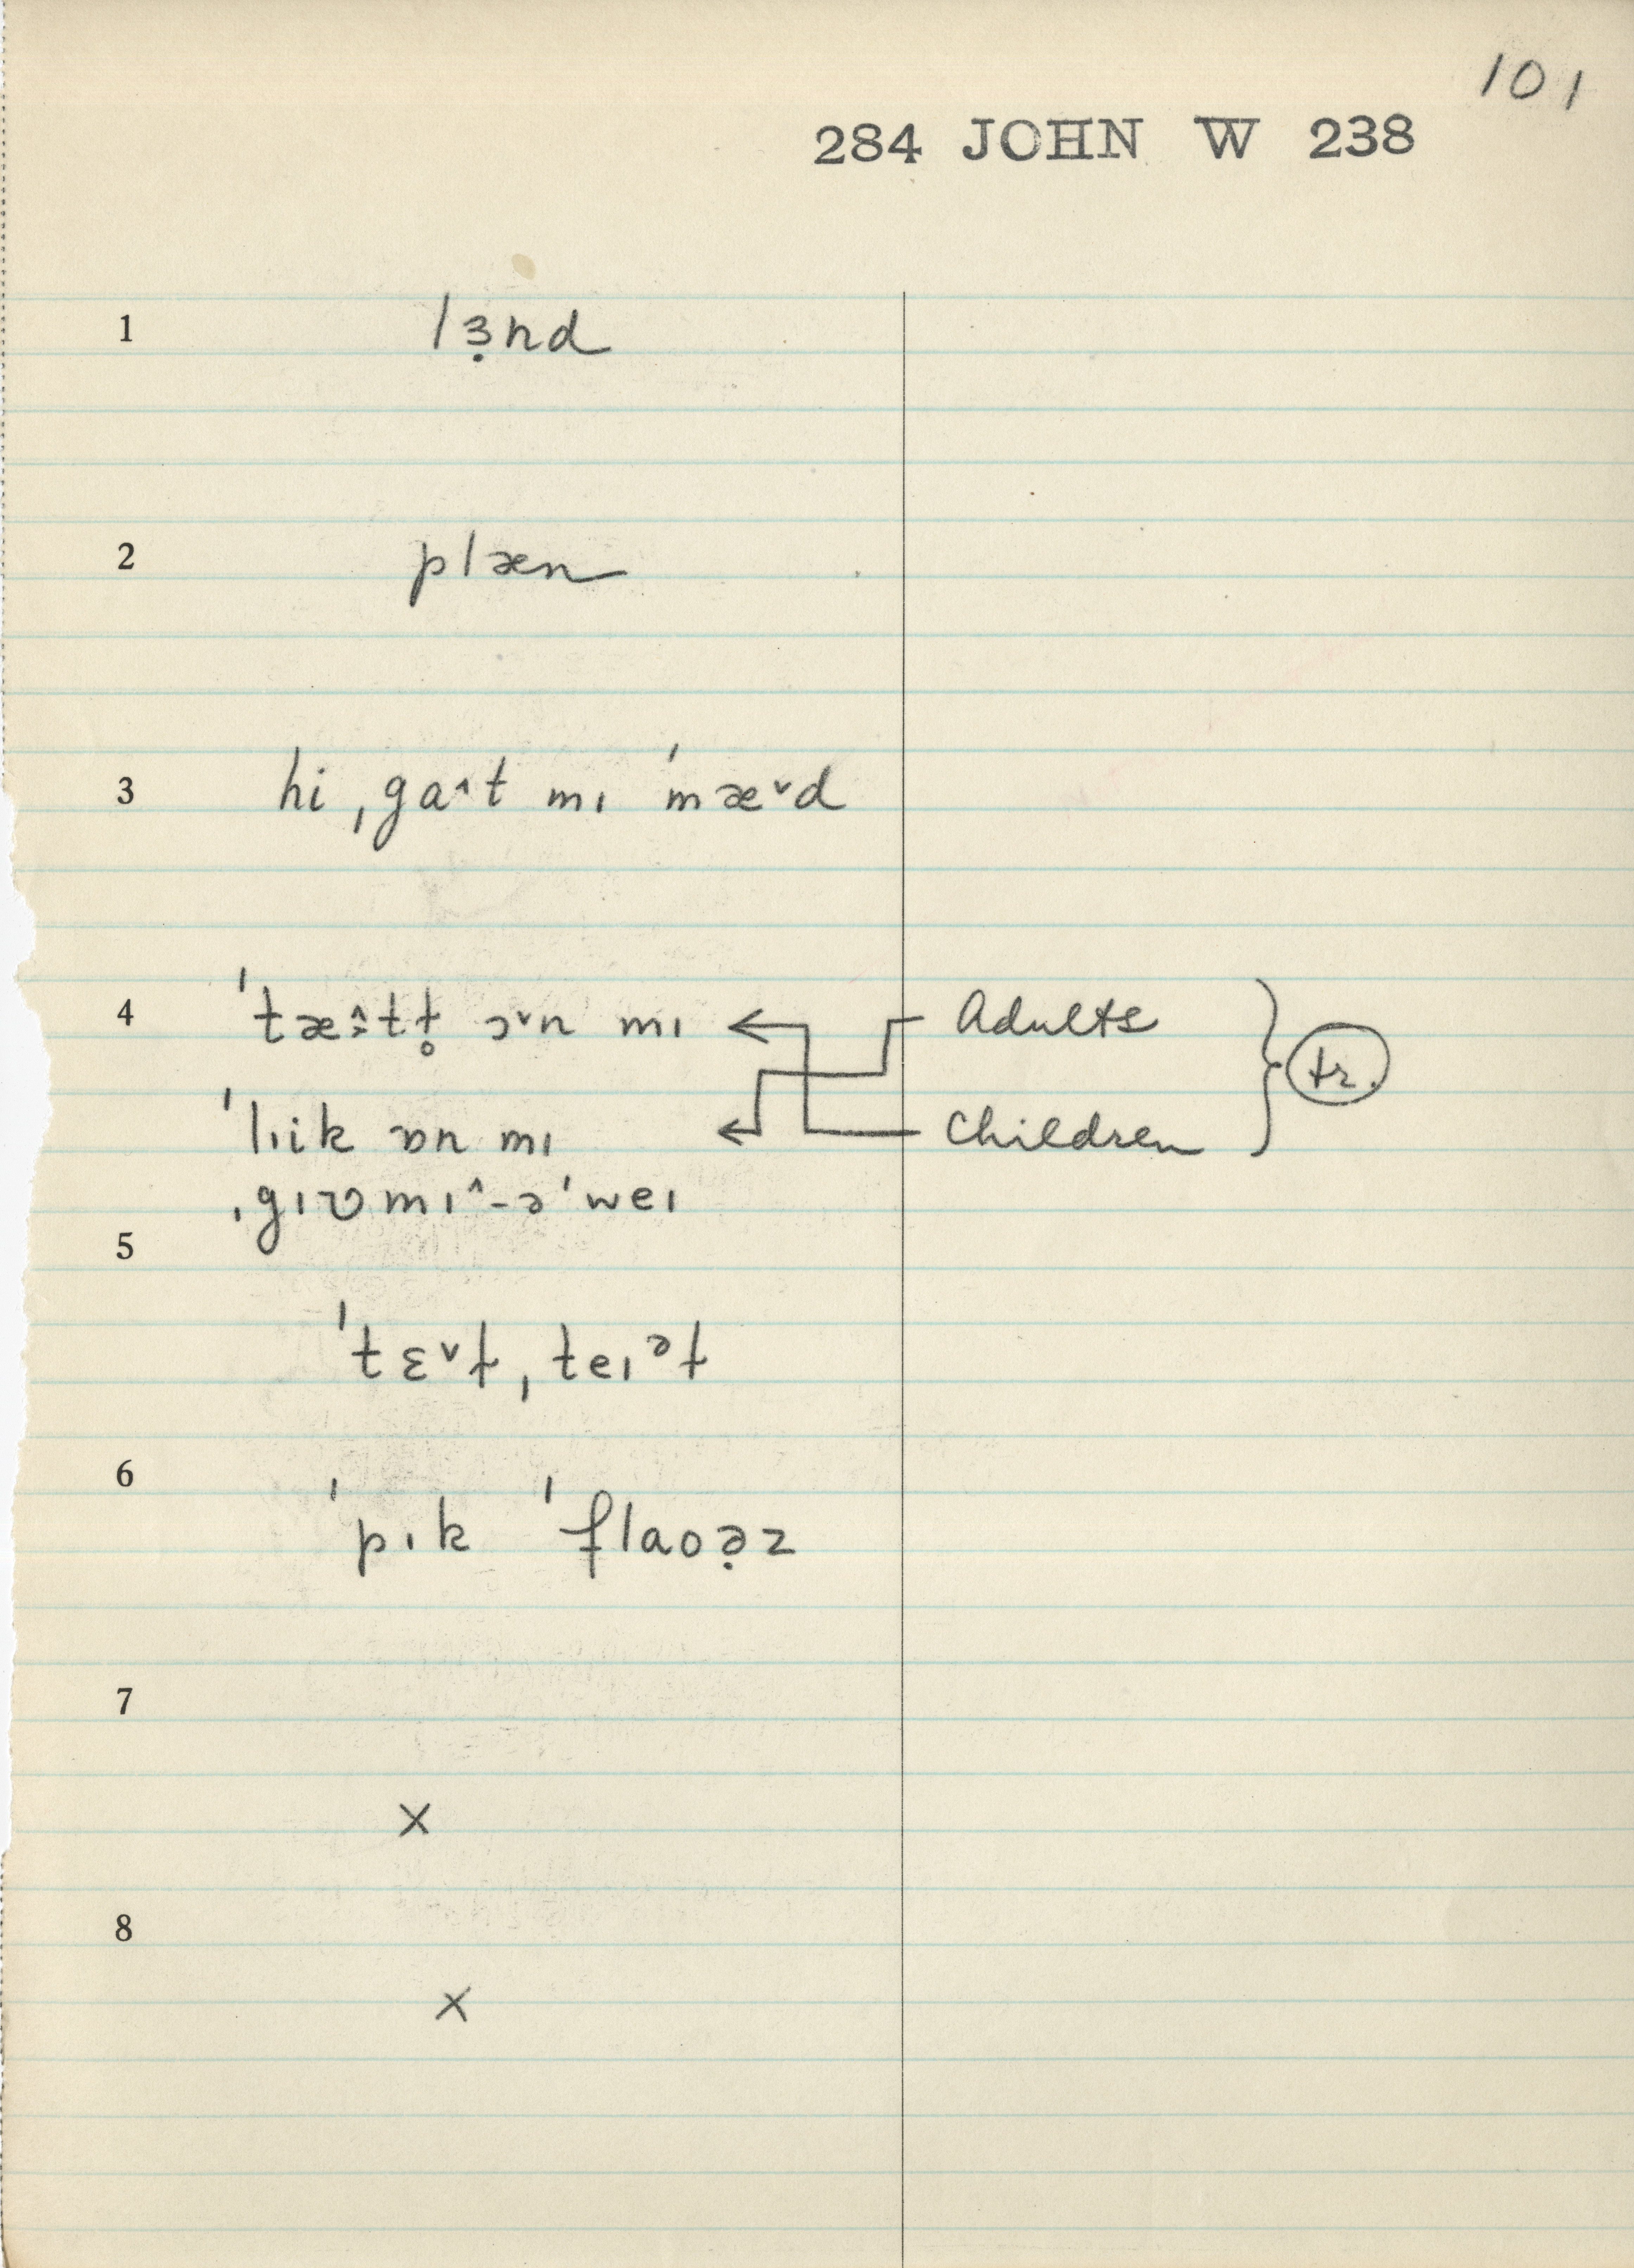 101
284 JOHN W 238
1 lɜ̣nd
2 plæn
3 hi ˌga˄t mɪ ˈmæ˅d
4 ˈtæ˄·tɫ̥ ɔ˅n mɪ Adults
ˈlɪik ɒn mɪ Children tr.
ˌgɪʋmɪ˄-əˈweɪ
5
ˈtɛ˅ɫˌteɪᵊɫ
6
ˈpɪk ˈflaoə̣z
7
x
8
x